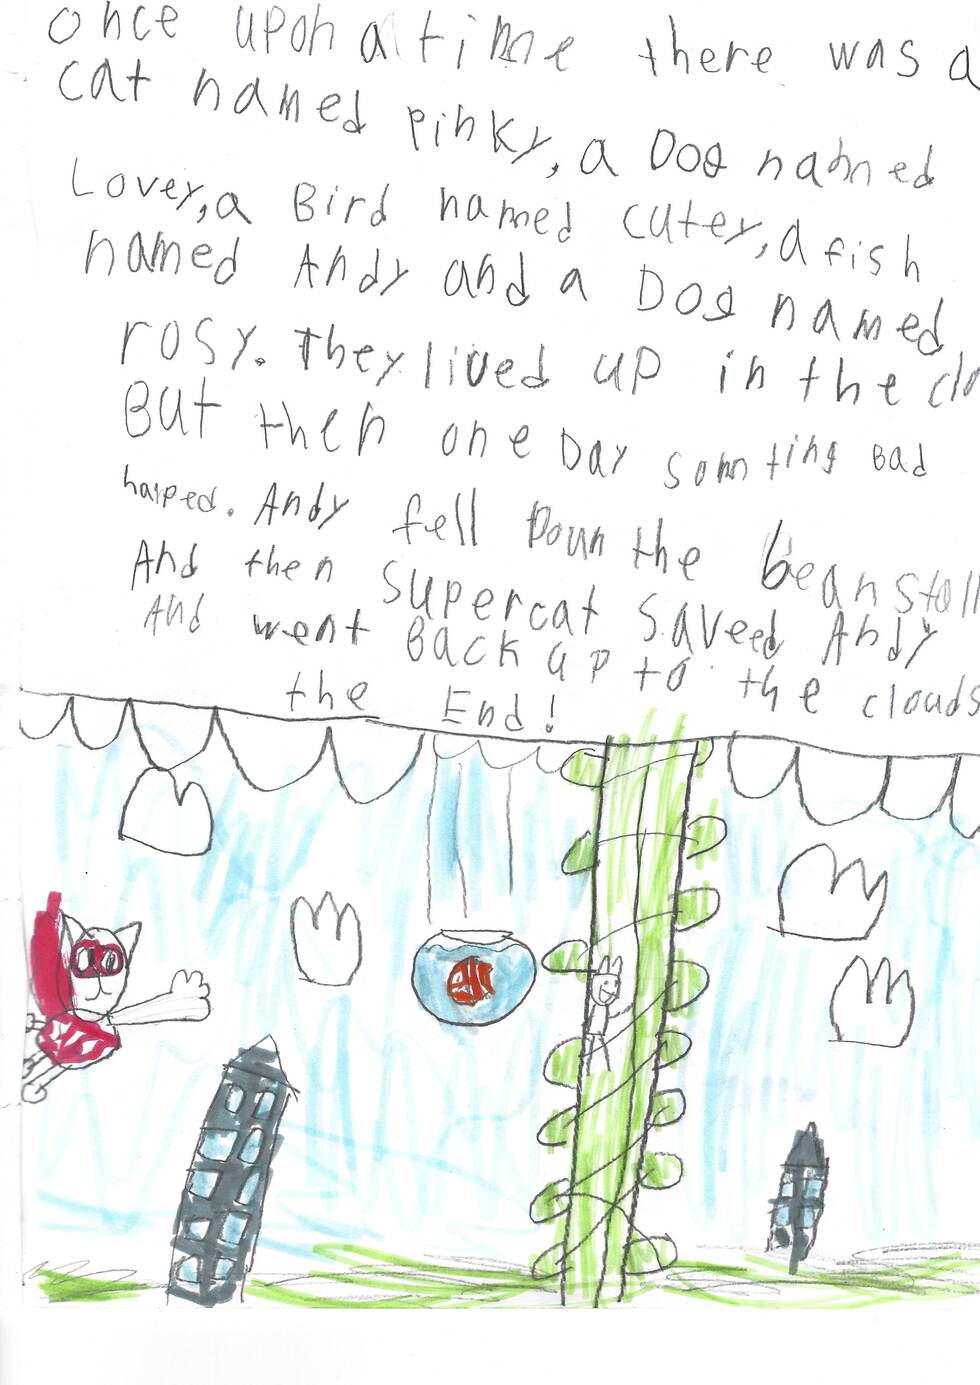 once upon a time there was a
cat named pinky, a Dog named
Lovey, a Bird named cutey, a fish
named Andy and a Dog named
rosy. They lived up in the clo
But then one Day somting Bad
haped. Andy fell Doun the beanstall
And then supercat saveed Andy
And went Back up to the clouds
the End!